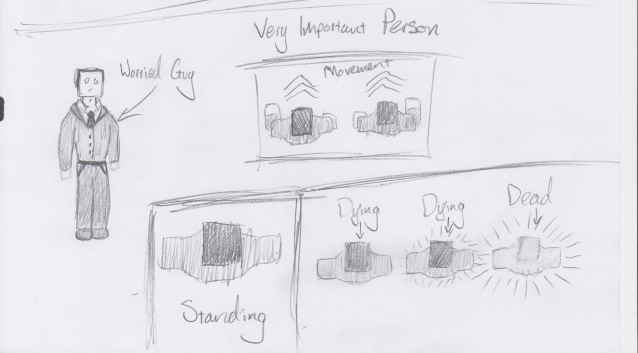 Very Important Person
Worried Guy
Movement
Standing
Dying
Dying
Dead